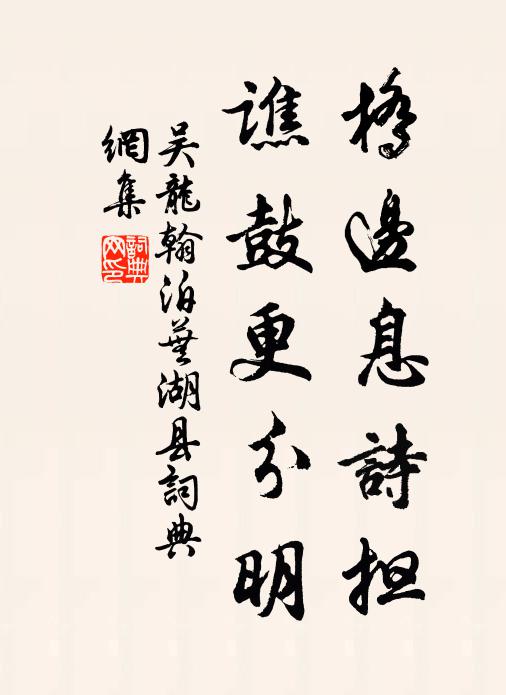 橋邊息詩担
譙鼓更分明
吴龍翰泊蕪湖县詞典
網集
詞典
网印